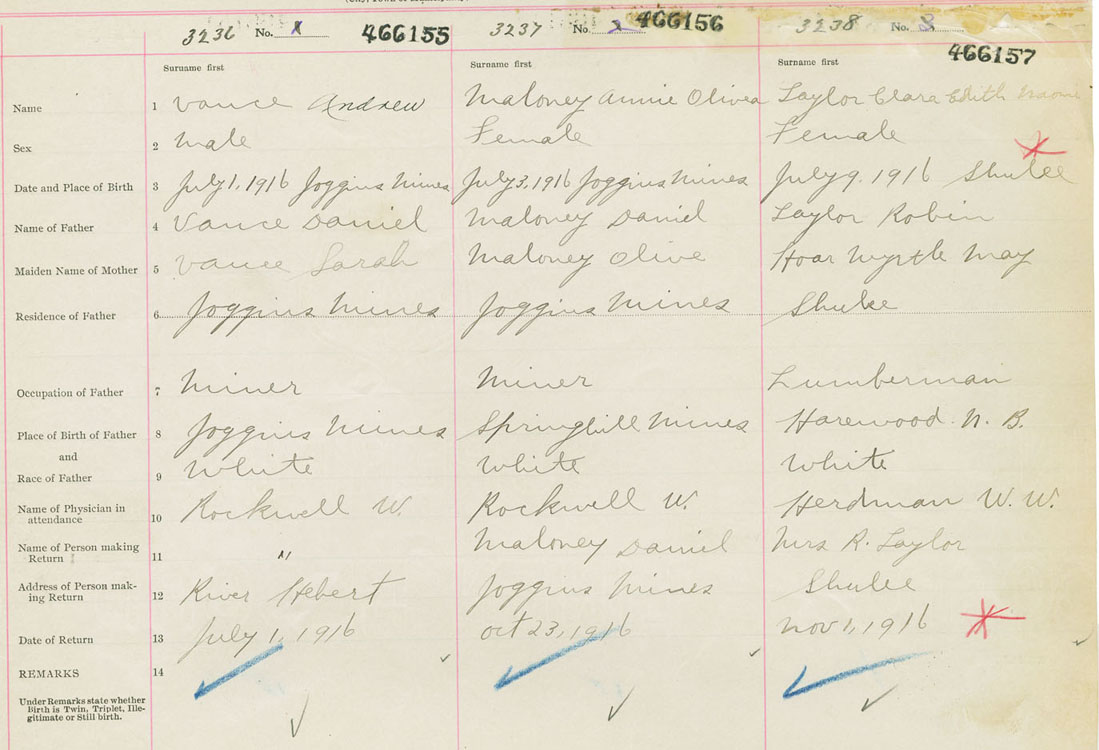 3236 No. 466155 3237 No. 466156 3238 No. 8 466157
Surname first Surname first Surname first
Name 1 Vance Andrew Maloney Annie Olivea Taylor Clara Edith
Sex 2 Male Female Female
Date and Place of Birth 3 July 1, 1916 Joggins Mines July 3, 1916 Joggins Mines July 9. 1916 Shulee
Name of Father 4 Vance Daniel Maloney Daniel Taylor Robin
Maiden Name of Mother 5 Vance Sarah Maloney Olive Hoar Myrtle May
Residence of Father 6 Joggins Mines Joggins Mines Shulee
Occupation of Father 7 Miner Miner Lumberman
Place of Birth of Father 8 Joggins Mines Springhill Mines Harewood. N. B.
and
Race of Father 9 White White White
Name of Physician in
attendance 10 Rockwell W. Rockwell W. Herdman W. W.
Name of Person making
Return 11 " Maloney Daniel Mrs R. Taylor
Address of Person mak-
ing Return 12 River Hebert Joggins Mines Shulee
Date of Return 13 July 1, 1916 Oct 23, 1916 Nov 1, 1916
REMARKS 14
Under Remarks state whether
Birth is Twin, Triplet, Ille-
gitimate or Still birth.